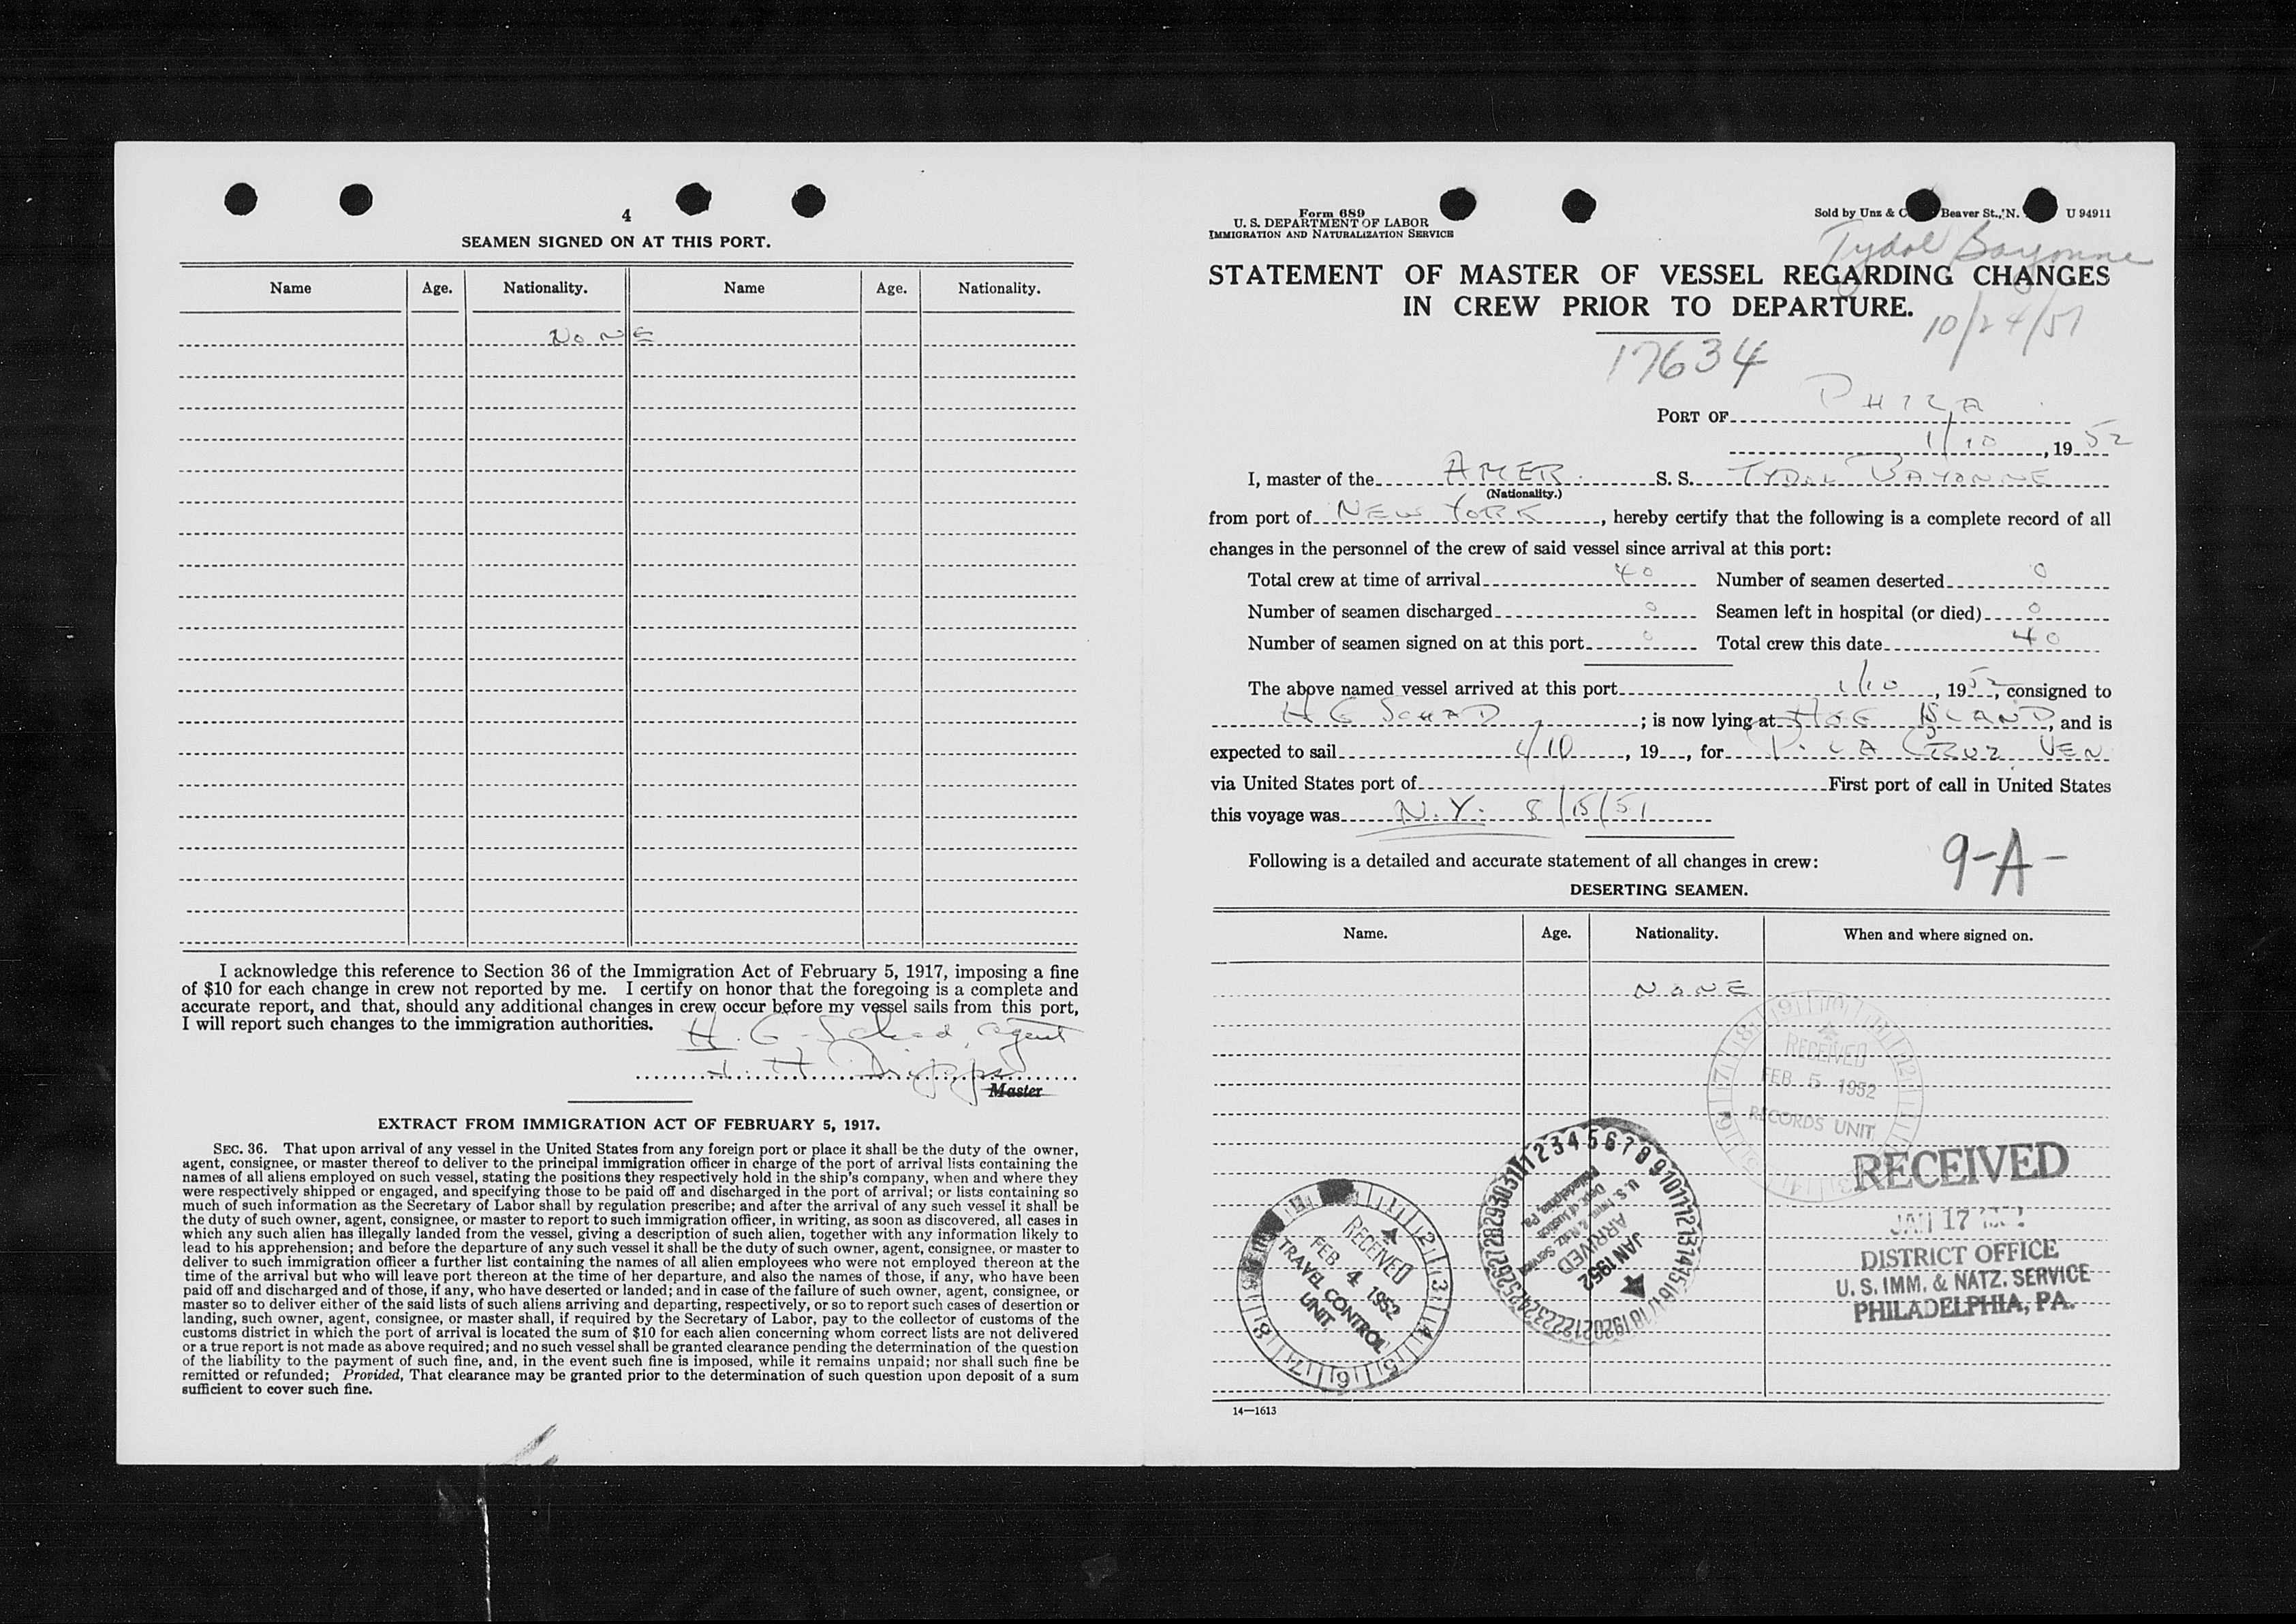 4
SEAMEN SIGNED ON AT THIS PORT.
Name Age. Nationality. Name Age. Nationality.
NONE
I acknowledge this reference to Section 36 of the Immigration Act of February 5, 1917, imposing a fine
of $10 for each change in crew not reported by me. I certify on honor that the foregoing is a complete and
accurate report, and that, should any additional changes in crew occur before my vessel sails from this port,
I will report such changes to the immigration authorities.
H. G. Schad, agent
Master
EXTRACT FROM IMMIGRATION ACT OF FEBRUARY 5, 1917.
SEC. 36. That upon arrival of any vessel in the United States from any foreign port or place it shall be the duty of the owner,
agent, consignee, or master thereof to deliver to the principal immigration officer in charge of the port of arrival lists containing the
names of all aliens employed on such vessel, stating the positions they respectively hold in the ship's company, when and where they
were respectively shipped or engaged, and specifying those to be paid off and discharged in the port of arrival; or lists containing so
much of such information as the Secretary of Labor shall by regulation prescribe; and after the arrival of any such vessel it shall be
the duty of such owner, agent, consignee, or master to report to such immigration officer, in writing, as soon as discovered, all cases in
which any such alien has illegally landed from the vessel, giving a description of such alien, together with any information likely to
lead to his apprehension; and before the departure of any such vessel it shall be the duty of such owner, agent, consignee, or master to
deliver to such immigration officer a further list containing the names of all alien employees who were not employed thereon at the
time of the arrival but who will leave port thereon at the time of her departure, and also the names of those, if any, who have been
paid off and discharged and of those, if any, who have deserted or landed; and in case of the failure of such owner, agent, consignee, or
master so to deliver either of the said lists of such aliens arriving and departing, respectively, or so to report such cases of desertion or
landing, such owner, agent, consignee, or master shall, if required by the Secretary of Labor, pay to the collector of customs of the
customs district in which the port of arrival is located the sum of $10 for each alien concerning whom correct lists are not delivered
or a true report is not made as above required; and no such vessel shall be granted clearance pending the determination of the question
of the liability to the payment of such fine, and, in the event such fine is imposed, while it remains unpaid; nor shall such fine be
remitted or refunded; Provided, That clearance may be granted prior to the determination of such question upon deposit of a sum
sufficient to cover such fine.
Form 689
U. S. DEPARTMENT OF LABOR
IMMIGRATION AND NATURALIZATION SERVICE
Sold by Unz & C Beaver St., N. U 94911
Tydol Bayonne
STATEMENT OF MASTER OF VESSEL REGARDING CHANGES
IN CREW PRIOR TO DEPARTURE.
10/24/51
17634
PORT OF PHILA
1/10, 19 52
I, master of the AMER. S. S. TYDOL BAYONNE
(Nationality.)
from port of NEW YORK, hereby certify that the following is a complete record of all
changes in the personnel of the crew of said vessel since arrival at this port:
Total crew at time of arrival 40 Number of seamen deserted 0
Number of seamen discharged 0 Seamen left in hospital (or died) 0
Number of seamen signed on at this port 0 Total crew this date 40
The above named vessel arrived at this port 1/10, 1952, consigned to
H G SCHAD; is now lying at HOG ISLAND, and is
expected to sail 1/10, 19, for P. LA CRUZ VEN
via United States port of First port of call in United States
this voyage was N.Y. 8/15/51
Following is a detailed and accurate statement of all changes in crew:
9-A-
DESERTING SEAMEN.
Name. Age. Nationality. When and where signed on.
NONE
RECEIVED
FEB 5 1952
RECORDS UNIT
RECEIVED
JAN 17
DISTRICT OFFICE
U. S. IMM. & NATZ. SERVICE
PHILADELPHIA, PA.
U. S. Imm. & Natz. Service
Dept. of Justice
Philadelphia, Pa.
ARRIVED
JAN 1952
RECEIVED
FEB 4 1952
TRAVEL CONTROL
UNIT
14—1613